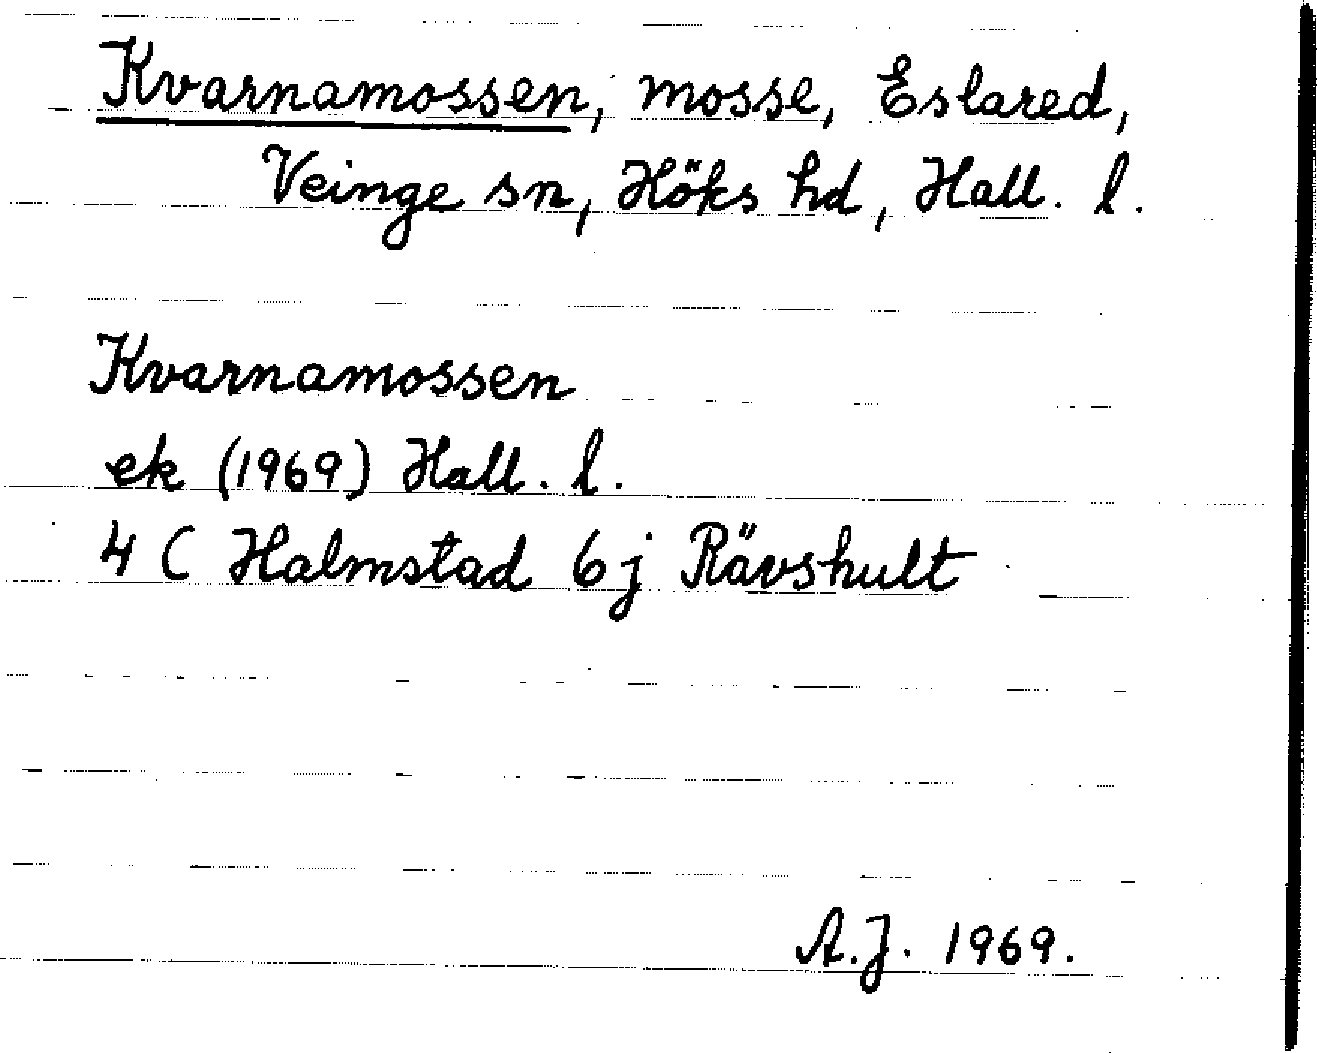 Kvarnamossen, mosse, Eslared,
Veinge sn, Höks hd, Hall. l.
Kvarnamossen
ek (1969) Hall. l.
4 C Halmstad 6 j Rävshult
A.J. 1969.